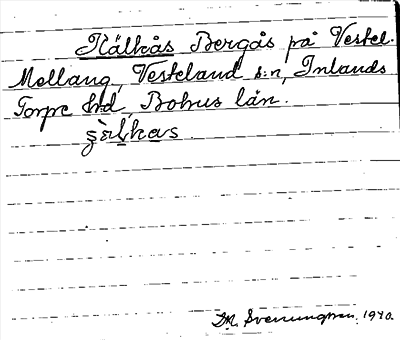 Källkås Bergås på Vestel.
Mellang, Vesteland s:n, Inlands
Torpe hd, Bohus län.
D.M. Svenungsson. 1940.